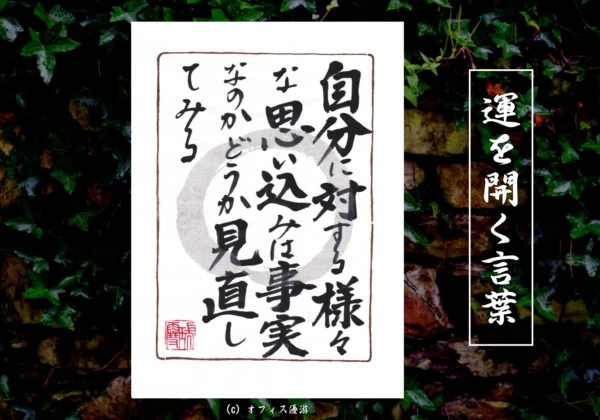 運を開く言葉
自分に対する様々
な思い込みは事実
なのかどうか見直し
てみる
(C) オフィス優游